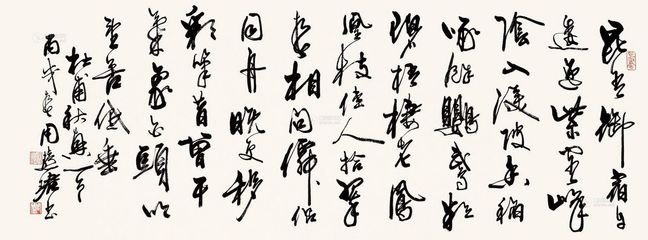 昆吾御宿自
逶迤紫閣峰
陰入渼陂香稻
啄餘鸚鵡粒
碧梧棲老鳳
凰枝佳人拾翠
春相問僊侶
同舟晚更移
彩筆昔曾干
氣象白頭吟
望苦低垂
杜甫秋興一首
丙戌夏周慧珺書